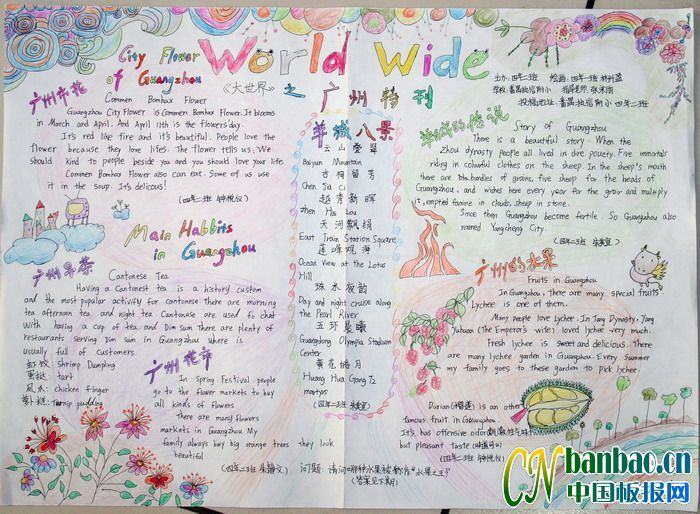 World Wide
《大世界》之广州特刊
City Flower
of Guangzhou
广州市花
Common Bombax Flower
Guangzhou City Flower is Common Bombax Flower. It blooms
in March and April. And April 11th is the flowers day.
It's red like fire and it's beautiful. People love the
flower because they love lifes. The flower tells us: We
should kind to people beside you and you should love your life
Common Bombax Flower also can eat. Some of us use
it in the soup. It's delicous!
Main Habbits
in Guangzhou
广州早茶
Cantonese Tea
Having a Cantonest tea is a history custom
and the most popular activity for cantonese There are morning
tea afternoon tea and night tea Cantonese are used to chat
With having a cup of tea and Dim sum There are plenty of
restaurants serving Dim sum in Guangzhou where is
usually full of customers
虾饺: Shrimp Dumpling
蛋挞: tart
凤爪: chicken finger
萝卜糕: turnip pudding
广州花市
In Spring Festival people
go to the flower markets to buy
all kinds of flowers
There are many flowers
markets in Guangzhou My
family always buy big orange trees they look
beautiful
羊城八景
云山叠翠
Baiyun Mountain
古祠留芳
Chen Jia Ci
越秀新晖
Zhen Hai Lou
天河飘绢
East Train Station Square
莲峰观海
Ocean View at the Lotus
Hill
珠水夜韵
Day and night cruise along
the Pearl River
五环晨曦
Guangdong Olympia Stadium
Center
黄花皓月
Huang Hua Gang 72
martyrs
主办: 四年二班
羊城的传说
Story of Guangzhou
There is a beautiful story: When the
Zhou dynasty people all lived in dire pouety. Five immortals
riding in colourful clothes on the sheep. In the sheep's mouth
there are bits.bundles of grains, five sheep for the beads of
Guangzhou, and wishes here every year for the grair and multiply
it, emptied famine in clouds, sheep in stone.
Since then Guangzhou become fertile. So Guangzhou also
named Yangcheng City.
广州的水果
Fruits in Guangzhou
In Guangzhou, there are many special fruits
Lychee is one of them.
Many people love Lychee. In Tang Dynasty, Yang
Yuhuan (The Emperor's wife) loved lychee very much.
Fresh lychee is sweet and delicious. There
are many lychee garden in Guangzhou. Every summer
my family goes to these garden to pick lychee.
Durian (榴莲) is an other
famous fruit in Guangzhou.
It's has offensive odor
but pleasant taste
问题: 请问哪种水果被称作"水果之王"
(答案见下期)
CNbanbao.cn
中国板报网